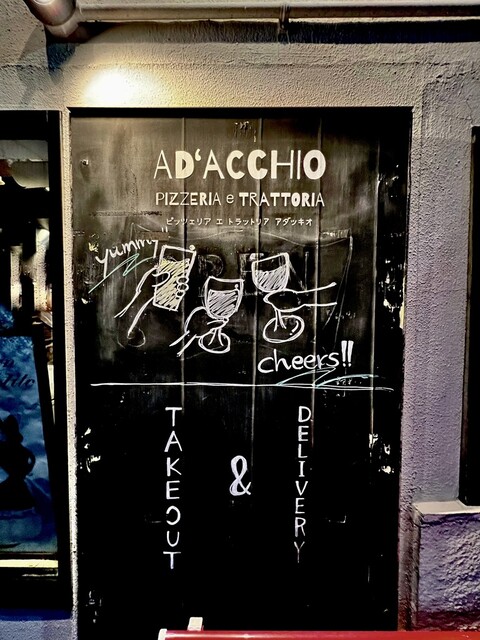 AD'ACCHIO
PIZZERIA e TRATTORIA
ピッツェリア エ トラットリア アダッキオ
yummy
cheers!!
TAKEOUT
&
DELIVERY